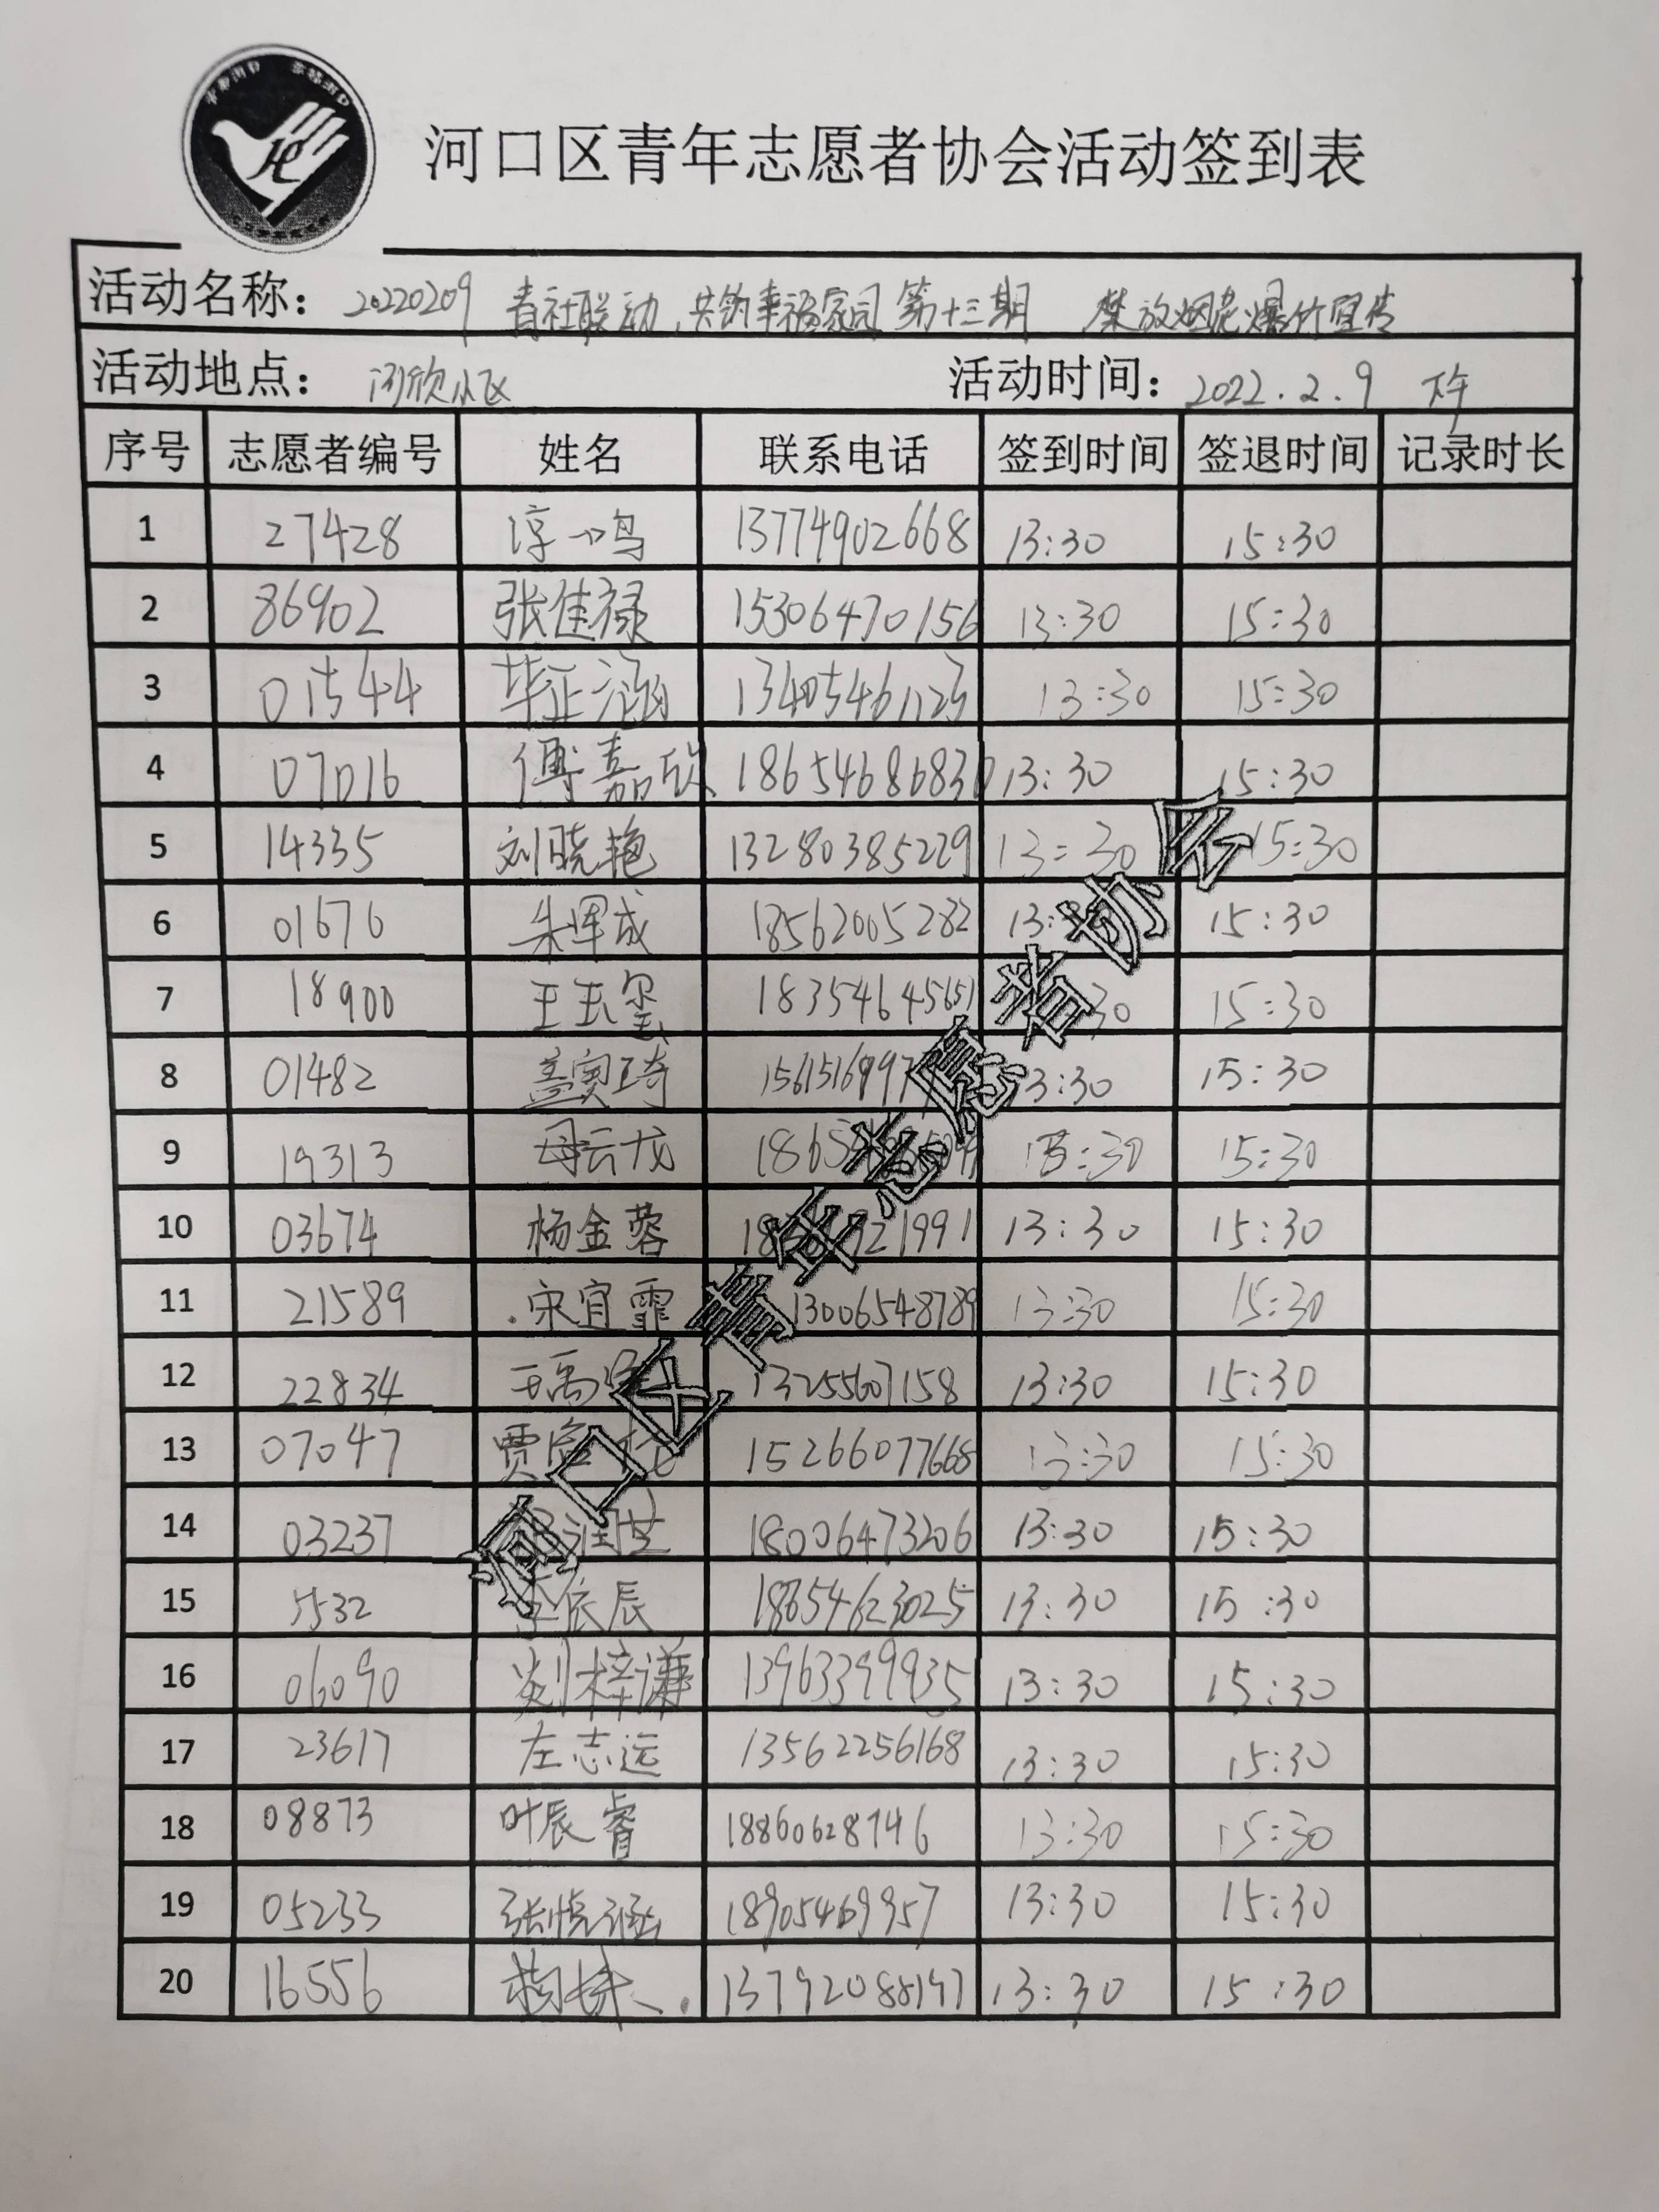 河口区青年志愿者协会活动签到表
活动名称： 20220209 青社联动，共筑幸福家园 第十三期 禁放烟花爆竹宣传
活动地点： 河欣小区 活动时间： 2022.2.9 下午
序号 志愿者编号 姓名 联系电话 签到时间 签退时间 记录时长
1 27428 淳一鸣 13774902668 13:30 15:30
2 86902 张佳禄 15306470156 13:30 15:30
3 01544 毕正涵 13405461123 13:30 15:30
4 07016 傅嘉欣 18654686830 13:30 15:30
5 14335 刘晓艳 13280385229 13:30 15:30
6 01676 朱晖成 18562005282 13:30 15:30
7 18900 王玉玺 18354645651 30 15:30
8 01482 盖寅琦 13:30 15:30
9 19313 母云龙 13:30 15:30
10 03674 杨金蓉 13:30 15:30
11 21589 宋宜霏 13006548789 13:30 15:30
12 22834 王禹 13255607158 13:30 15:30
13 07047 贾 15266077668 13:30 15:30
14 03237 润芝 18006473206 13:30 15:30
15 5532 依辰 18654623025 13:30 15:30
16 06090 刘梓谦 13963399935 13:30 15:30
17 23617 左志远 13562256168 13:30 15:30
18 08873 叶辰睿 18860628746 13:30 15:30
19 05233 张悦涵 18905469957 13:30 15:30
20 16556 13792088197 13:30 15:30
河口区青年志愿者协会